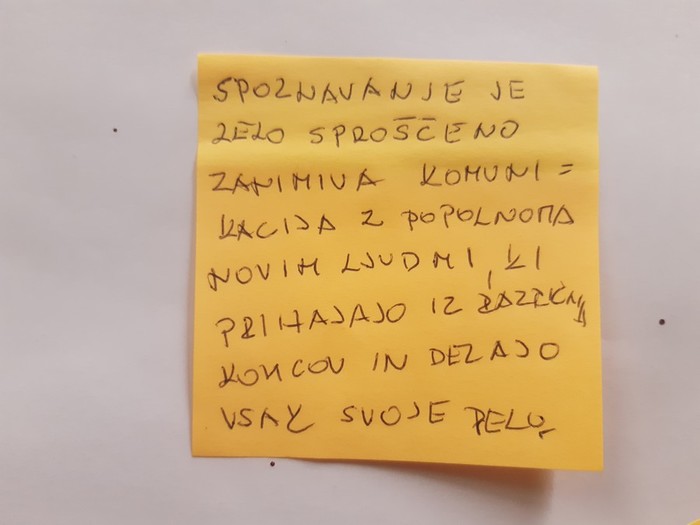 SPOZNAVANJE JE
ZELO SPROŠČENO
ZANIMIVA KOMUNI=
KACIJA Z POPOLNOMA
NOVIM LJUDMI, KI
PRIHAJAJO IZ RAZLIČNIH
KONCOV IN DELAJO
VSAK SVOJE DELO.